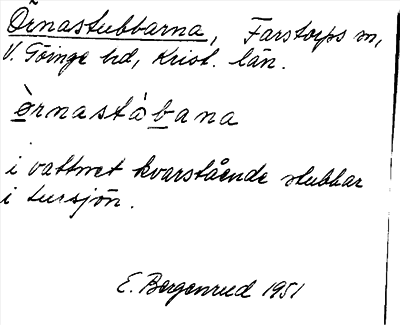 Örnastubbarna, Farstorps sn,
V. Göinge hd, Krist. län.
ò̱rnastò̱bana
i vattnet kvarstående stubbar
i Lursjön.
E. Bergenrud 1951